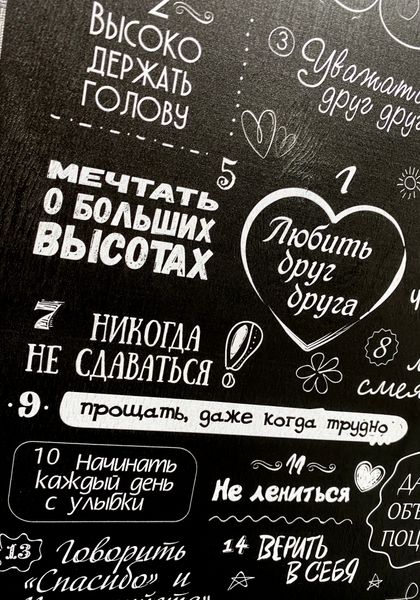 2
Высоко
держать
голову
3
Уважать
друг друга
5
МЕЧТАТЬ
О БОЛЬШИХ
ВЫСОТАХ
1
Любить
друг
друга
7
НИКОГДА
НЕ СДАВАТЬСЯ!
8
9
прощать, даже когда трудно
10 Начинать
каждый день
с улыбки
11
Не лениться
13
Говорить
«Спасибо» и
14 ВЕРИТЬ
В СЕБЯ